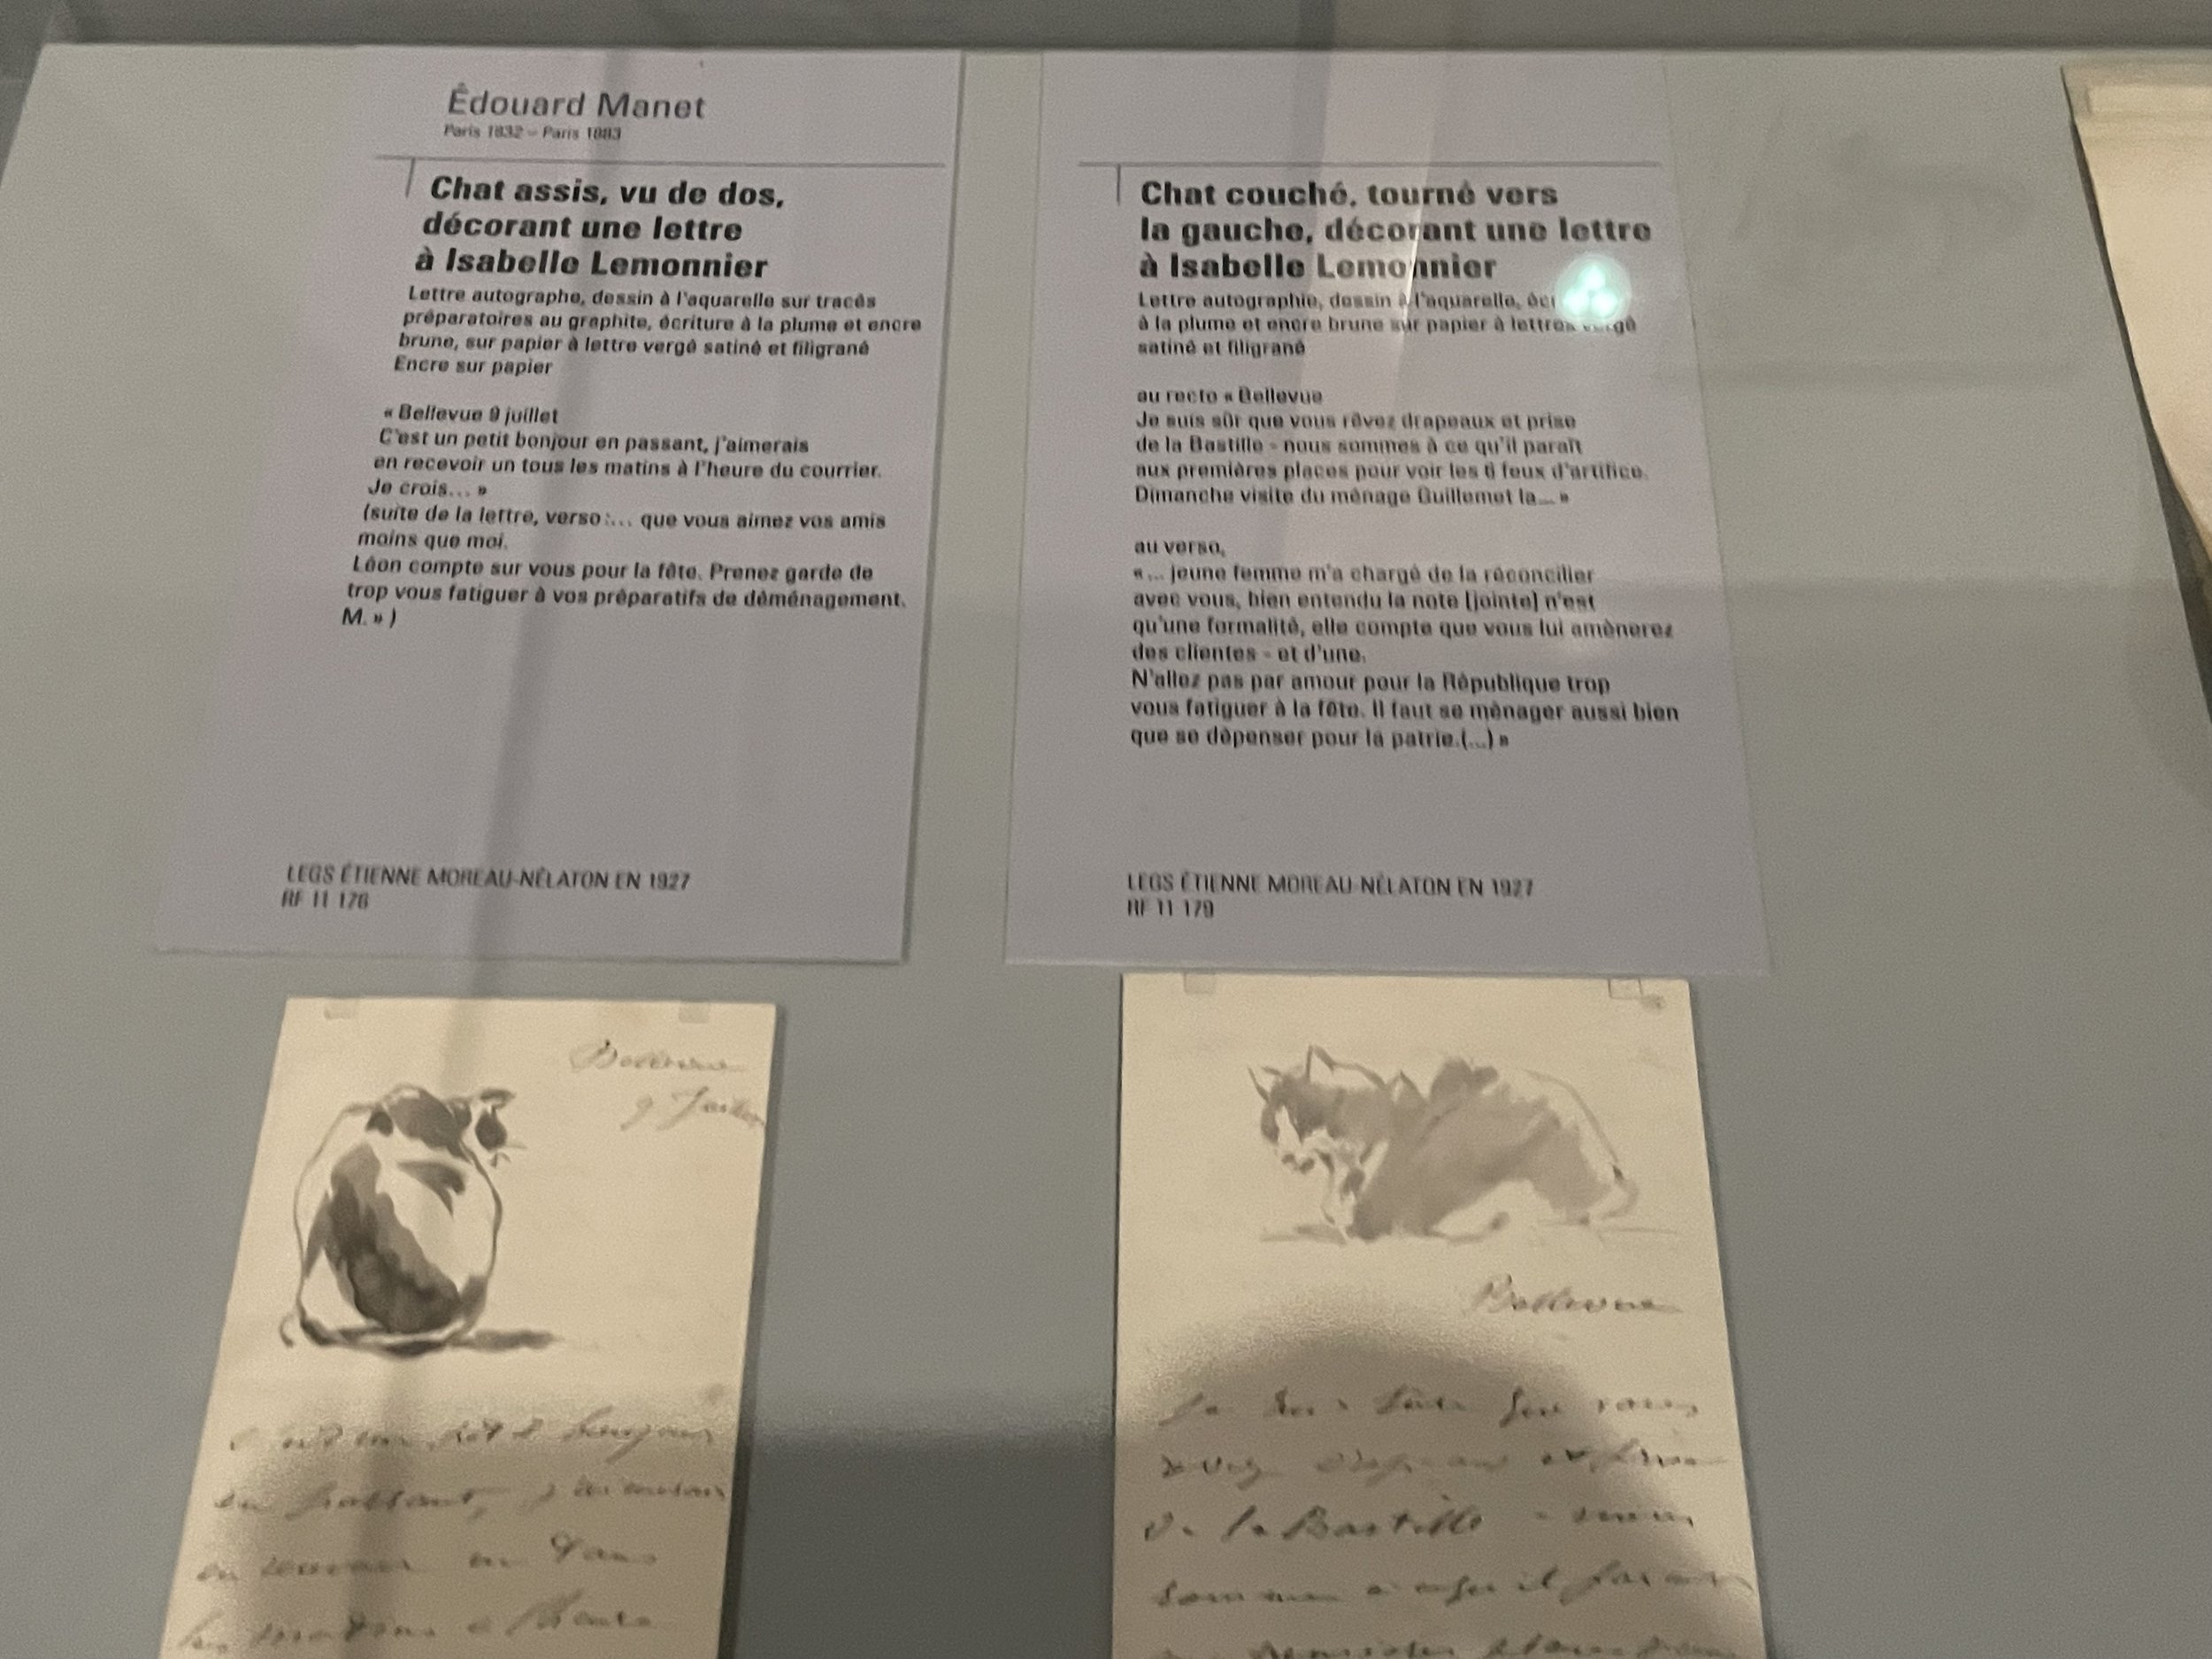 Édouard Manet
Paris 1832 – Paris 1883
Chat assis, vu de dos,
décorant une lettre
à Isabelle Lemonnier
Lettre autographe, dessin à l'aquarelle sur tracés
préparatoires au graphite, écriture à la plume et encre
brune, sur papier à lettre vergé satiné et filigrané
Encre sur papier
« Bellevue 9 juillet
C'est un petit bonjour en passant, j'aimerais
en recevoir un tous les matins à l'heure du courrier.
Je crois... »
(suite de la lettre, verso :... que vous aimez vos amis
moins que moi.
Léon compte sur vous pour la fête. Prenez garde de
trop vous fatiguer à vos préparatifs de déménagement.
M. » )
LEGS ÉTIENNE MOREAU-NÉLATON EN 1927
RF 11 176
Chat couché, tourné vers
la gauche, décorant une lettre
à Isabelle Lemonnier
Lettre autographie, dessin à l'aquarelle,
à la plume et encre brune sur papier à lettres vergé
satiné et filigrané
au recto « Bellevue
Je suis sûr que vous rêvez drapeaux et prise
de la Bastille - nous sommes à ce qu'il paraît
aux premières places pour voir les 6 feux d'artifice.
Dimanche visite du ménage Guillemet la... »
au verso,
«... jeune femme m'a chargé de la réconcilier
avec vous, bien entendu la note [jointe] n'est
qu'une formalité, elle compte que vous lui amènerez
des clientes - et d'une.
N'allez pas par amour pour la République trop
vous fatiguer à la fête. Il faut se ménager aussi bien
que se dépenser pour la patrie.(...) »
LEGS ÉTIENNE MOREAU-NÉLATON EN 1927
RF 11 179
Bellevue
9 Juillet
C'est un petit bonjour
en passant, j'aimerais
en recevoir un tous
les matins à l'heure
Bellevue
Je suis sûr que vous
rêvez drapeaux et prise
de la Bastille - nous
sommes à ce qu'il paraît